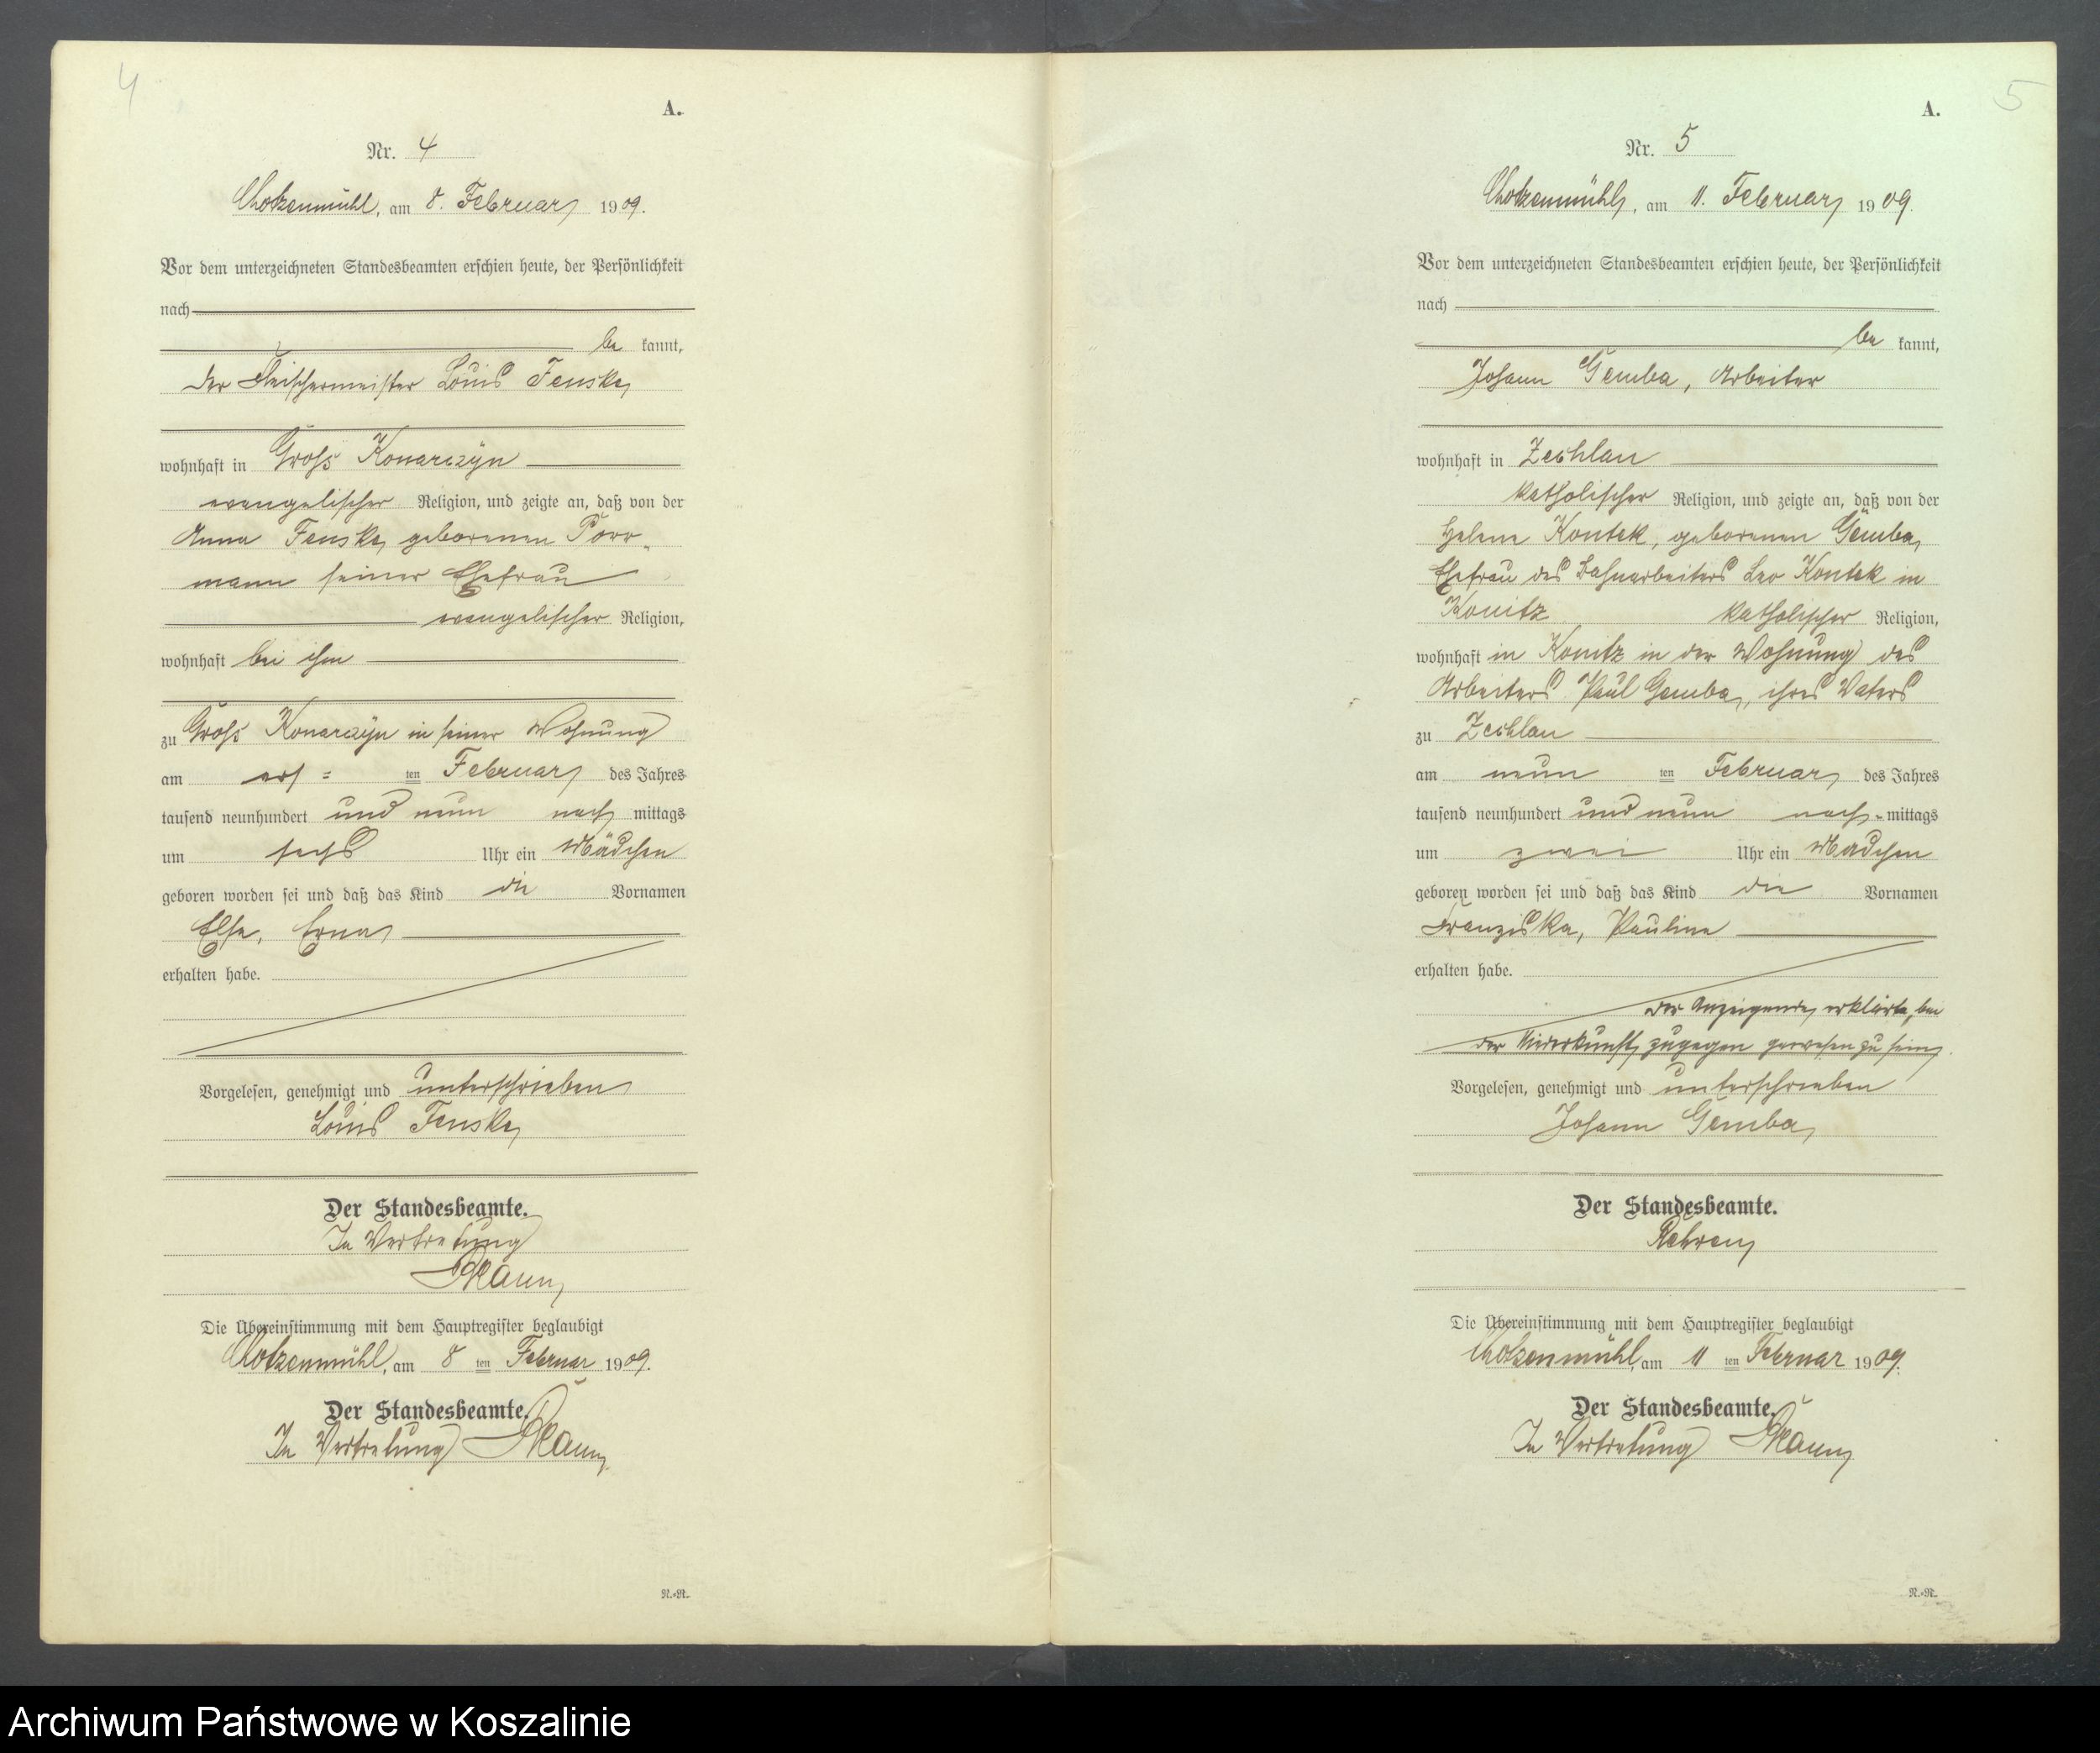 4
A.
Nr. 4
Chotzenmühl, am 8. Februar 1909.
Vor dem unterzeichneten Standesbeamten erschien heute, der Persönlichkeit
nach
be kannt,
der Fleischermeister Louis Fenske
wohnhaft in Groß Konarczyn
evangelischer Religion, und zeigte an, daß von der
Anna Fenske geborenen Porr-
mann seiner Ehefrau
evangelischer Religion,
wohnhaft bei ihm
zu Groß Konarczyn in seiner Wohnung
am ers= ten Februar des Jahres
tausend neunhundert und neun nach mittags
um sechs Uhr ein Mädchen
geboren worden sei und daß das Kind die Vornamen
Else, Erna
erhalten habe.
Vorgelesen, genehmigt und unterschrieben
Louis Fenske
Der Standesbeamte.
In Vertretung
Die Übereinstimmung mit dem Hauptregister beglaubigt
Chotzenmühl, am 8 ten Februar 1909.
Der Standesbeamte.
In Vertretung
N.=N.
5
A.
Nr. 5
Chotzenmühl, am 11. Februar 1909.
Vor dem unterzeichneten Standesbeamten erschien heute, der Persönlichkeit
nach
be kannt,
Johann Gemba, Arbeiter
wohnhaft in Zechlau
katholischer Religion, und zeigte an, daß von der
Helene Kontek, geborenen Gemba,
Ehefrau des Bahnarbeiters Leo Kontek in
Konitz katholischer Religion,
wohnhaft in Konitz in der Wohnung des
Arbeiters Paul Gemba, ihres Vaters
zu Zechlau
am neun ten Februar des Jahres
tausend neunhundert und neun nach=mittags
um zwei Uhr ein Mädchen
geboren worden sei und daß das Kind die Vornamen
Franziska, Pauline
erhalten habe.
Der Anzeigende erklärte, bei
der Niederkunft zugegen gewesen zu sein.
Vorgelesen, genehmigt und unterschrieben
Johann Gemba
Der Standesbeamte.
Die Übereinstimmung mit dem Hauptregister beglaubigt
Chotzenmühl, am 11 ten Februar 1909.
Der Standesbeamte.
In Vertretung
N.=N.
Archiwum Państwowe w Koszalinie